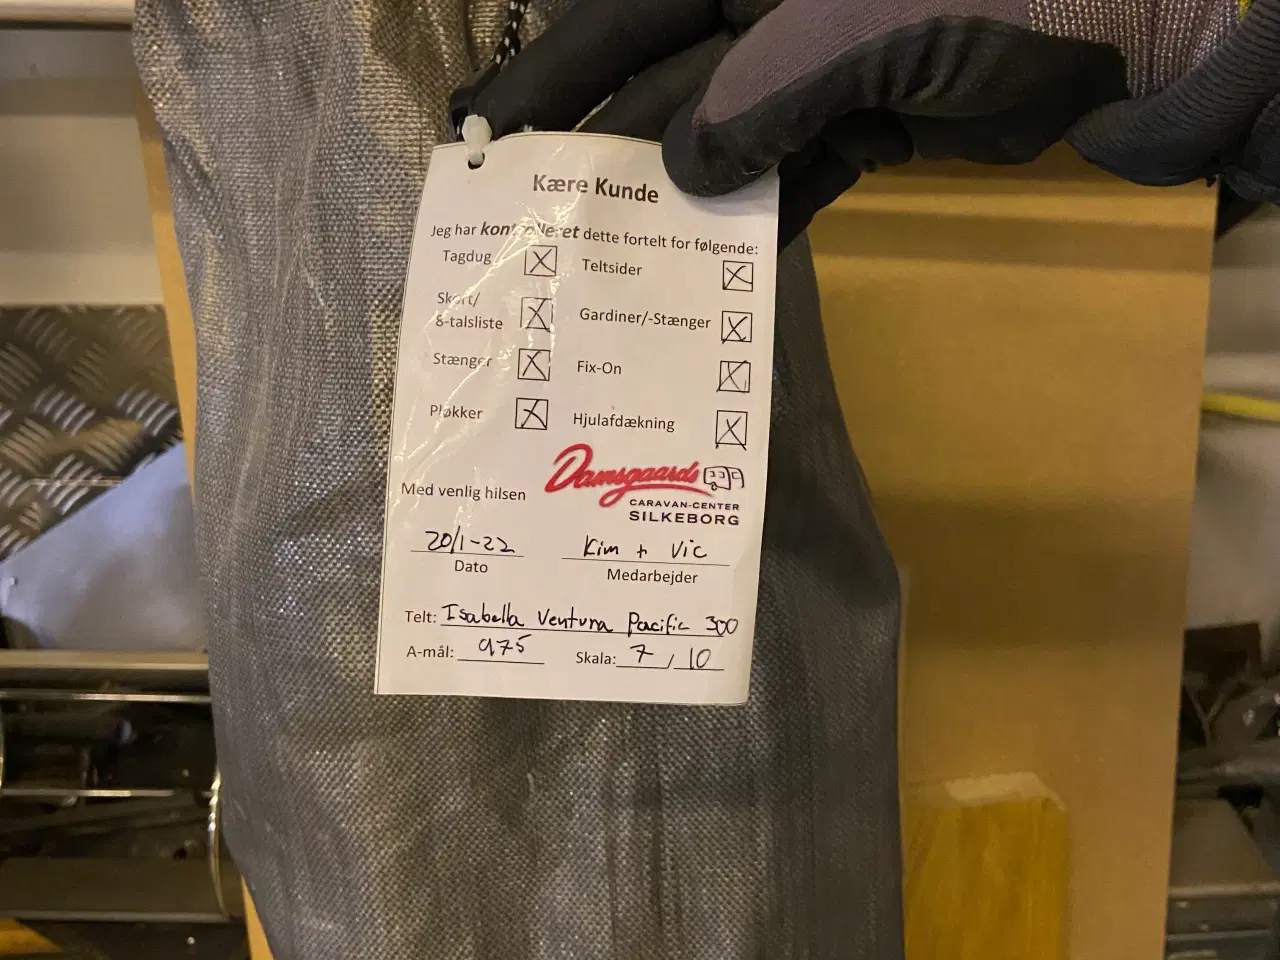 Kære Kunde
Jeg har kontrolleret dette fortelt for følgende:
Tagdug Teltsider
Skørt/
8-talsliste Gardiner/-Stænger
Stænger Fix-On
Pløkker Hjulafdækning
Damsgaards
CARAVAN-CENTER
Med venlig hilsen
SILKEBORG
20/1-22 Kim + Vic
Dato Medarbejder
Telt: Isabella Ventura Pacific 300
A-mål: 975 Skala: 7 / 10